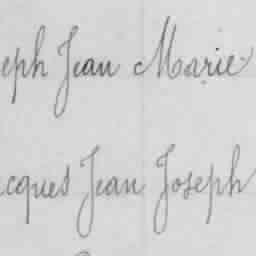 eph Jean Marie
cques Jean Joseph